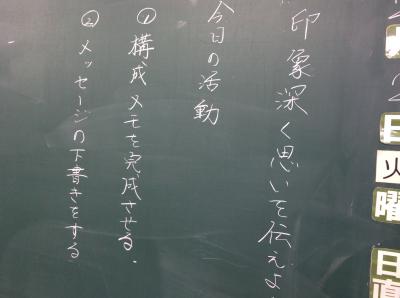 日
火
曜
日
直
印象深く思いを伝えよ
今日の活動
① 構成メモを完成させる.
② メッセージの下書きをする